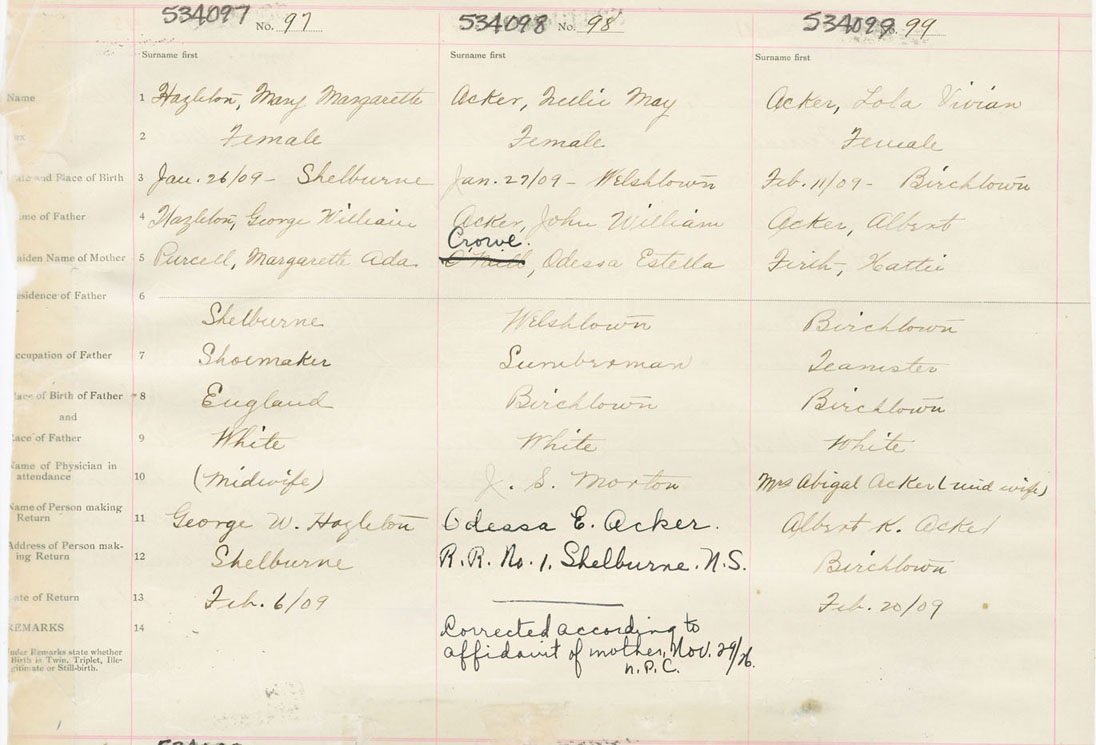 534097 No. 97
534098 No. 98
534099 99
Surname first
Surname first
Surname first
Name 1 Hazleton, Mary Margarette
Acker, Nellie May
Acker, Lola Vivian
2 Female
Female
Female
and Place of Birth 3 Jan. 26/09 - Shelburne
Jan. 27/09 - Welshtown
Feb. 11/09 - Birchtown
me of Father 4 Hazleton, George William
Acker, John William
Acker, Albert
Crowe.
aiden Name of Mother 5 Purcell, Margarette Ada
O'Neill, Odessa Estella
Firth, Hattie
esidence of Father 6
Shelburne
Welshtown
Birchtown
ccupation of Father 7 Shoemaker
Lumberman
Teamster
lace of Birth of Father 8 England
Birchtown
Birchtown
and
ace of Father 9 White
White
White
Name of Physician in
attendance 10 (Midwife)
J. S. Morton
Mrs Abigal Acker (mid wife)
Name of Person making
Return 11 George W. Hazleton
Odessa E. Acker.
Albert K. Acker
Address of Person mak-
ing Return 12 Shelburne
R. R. No. 1. Shelburne. N.S.
Birchtown
ate of Return 13 Feb. 6/09
Feb. 20/09
REMARKS 14
Corrected according to
affidavit of mother, Nov. 29/26.
n.P.C.
nder Remarks state whether
Birth is Twin, Triplet, Ille-
gitimate or Still-birth.